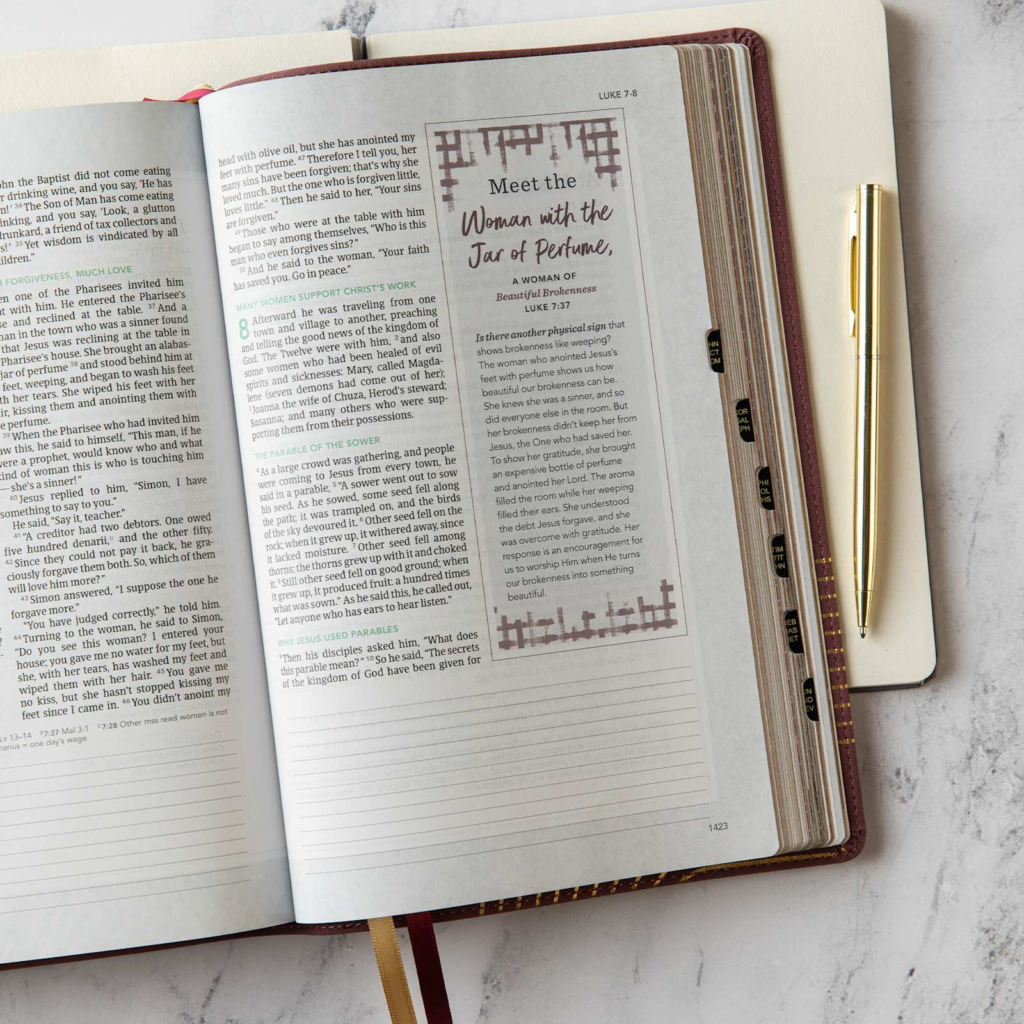 ohn the Baptist did not come eating
r drinking wine, and you say, 'He has
n!' 34 The Son of Man has come eating
inking, and you say, 'Look, a glutton
drunkard, a friend of tax collectors and
s!' 35 Yet wisdom is vindicated by all
ildren."
FORGIVENESS, MUCH LOVE
en one of the Pharisees invited him
at with him. He entered the Pharisee's
se and reclined at the table. 37 And a
man in the town who was a sinner found
that Jesus was reclining at the table in
Pharisee's house. She brought an alabas-
jar of perfume 38 and stood behind him at
feet, weeping, and began to wash his feet
with her tears. She wiped his feet with her
ir, kissing them and anointing them with
e perfume.
39 When the Pharisee who had invited him
aw this, he said to himself, "This man, if he
were a prophet, would know who and what
kind of woman this is who is touching him
—she's a sinner!"
40 Jesus replied to him, "Simon, I have
something to say to you."
He said, "Say it, teacher."
41 "A creditor had two debtors. One owed
five hundred denarii, and the other fifty.
42 Since they could not pay it back, he gra-
ciously forgave them both. So, which of them
will love him more?"
43 Simon answered, "I suppose the one he
forgave more."
"You have judged correctly," he told him.
44 Turning to the woman, he said to Simon,
"Do you see this woman? I entered your
house; you gave me no water for my feet, but
she, with her tears, has washed my feet and
wiped them with her hair. 45 You gave me
no kiss, but she hasn't stopped kissing my
feet since I came in. 46 You didn't anoint my
Lv 13–14 7:27 Mal 3:1 7:28 Other mss read women is not
narius = one day's wage
LUKE 7-8
head with olive oil, but she has anointed my
feet with perfume. 47 Therefore I tell you, her
many sins have been forgiven; that's why she
loved much. But the one who is forgiven little,
loves little." 48 Then he said to her, "Your sins
are forgiven."
49 Those who were at the table with him
began to say among themselves, "Who is this
man who even forgives sins?"
50 And he said to the woman, "Your faith
has saved you. Go in peace."
MANY WOMEN SUPPORT CHRIST'S WORK
8 Afterward he was traveling from one
town and village to another, preaching
and telling the good news of the kingdom of
God. The Twelve were with him, 2 and also
some women who had been healed of evil
spirits and sicknesses: Mary, called Magda-
lene (seven demons had come out of her);
3 Joanna the wife of Chuza, Herod's steward;
Susanna; and many others who were sup-
porting them from their possessions.
THE PARABLE OF THE SOWER
4 As a large crowd was gathering, and people
were coming to Jesus from every town, he
said in a parable, 5 "A sower went out to sow
his seed. As he sowed, some seed fell along
the path; it was trampled on, and the birds
of the sky devoured it. 6 Other seed fell on the
rock; when it grew up, it withered away, since
it lacked moisture. 7 Other seed fell among
thorns; the thorns grew up with it and choked
it. 8 Still other seed fell on good ground; when
it grew up, it produced fruit: a hundred times
what was sown." As he said this, he called out,
"Let anyone who has ears to hear listen."
WHY JESUS USED PARABLES
9 Then his disciples asked him, "What does
this parable mean?" 10 So he said, "The secrets
of the kingdom of God have been given for
Meet the
Woman with the
Jar of Perfume,
A WOMAN OF
Beautiful Brokenness
LUKE 7:37
Is there another physical sign that
shows brokenness like weeping?
The woman who anointed Jesus's
feet with perfume shows us how
beautiful our brokenness can be.
She knew she was a sinner, and so
did everyone else in the room. But
her brokenness didn't keep her from
Jesus, the One who had saved her.
To show her gratitude, she brought
an expensive bottle of perfume
and anointed her Lord. The aroma
filled the room while her weeping
filled their ears. She understood
the debt Jesus forgave, and she
was overcome with gratitude. Her
response is an encouragement for
us to worship Him when He turns
our brokenness into something
beautiful.
1423